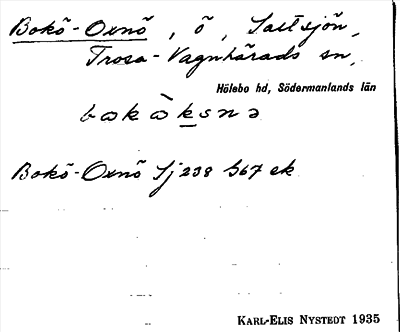 Bokö-Oxnö, ö, Saltsjön,
Trosa-Vagnhärads sn,
Hölebo hd, Södermanlands län
Bokö-Oxnö Sj 238 S67 ek
KARL-ELIS NYSTEDT 1935